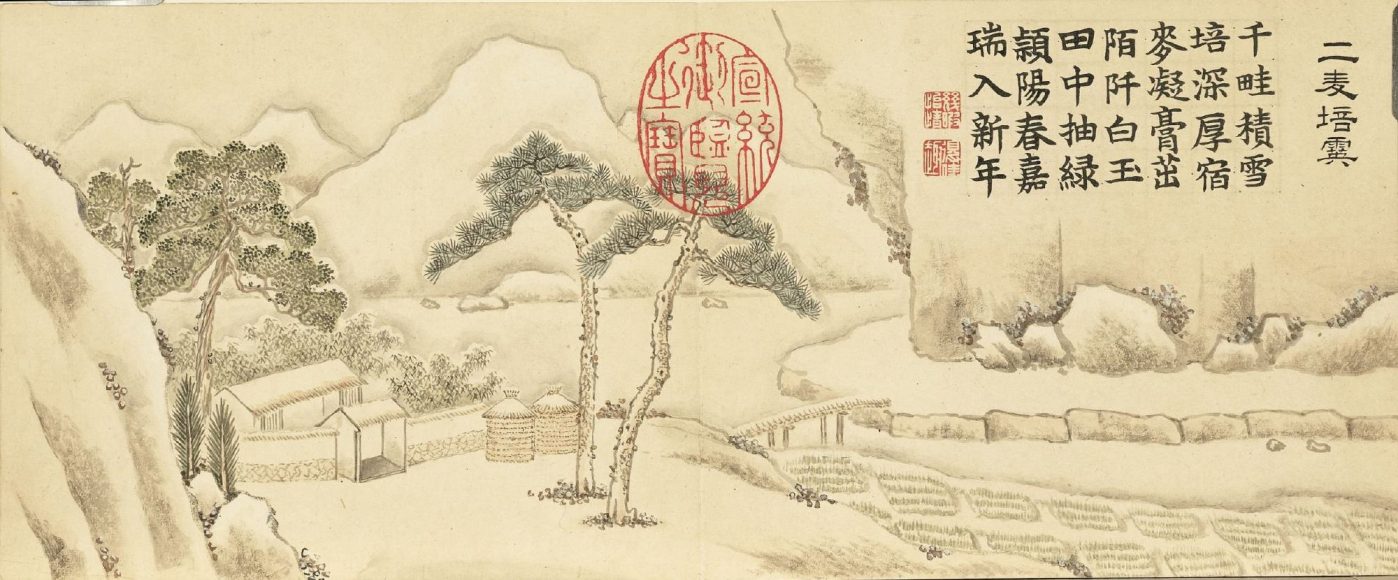 二麦培霙
千畦積雪
培深厚宿
麥凝膏茁
陌阡白玉
田中抽緑
頴陽春嘉
瑞入新年
宣統
御覽
之寶